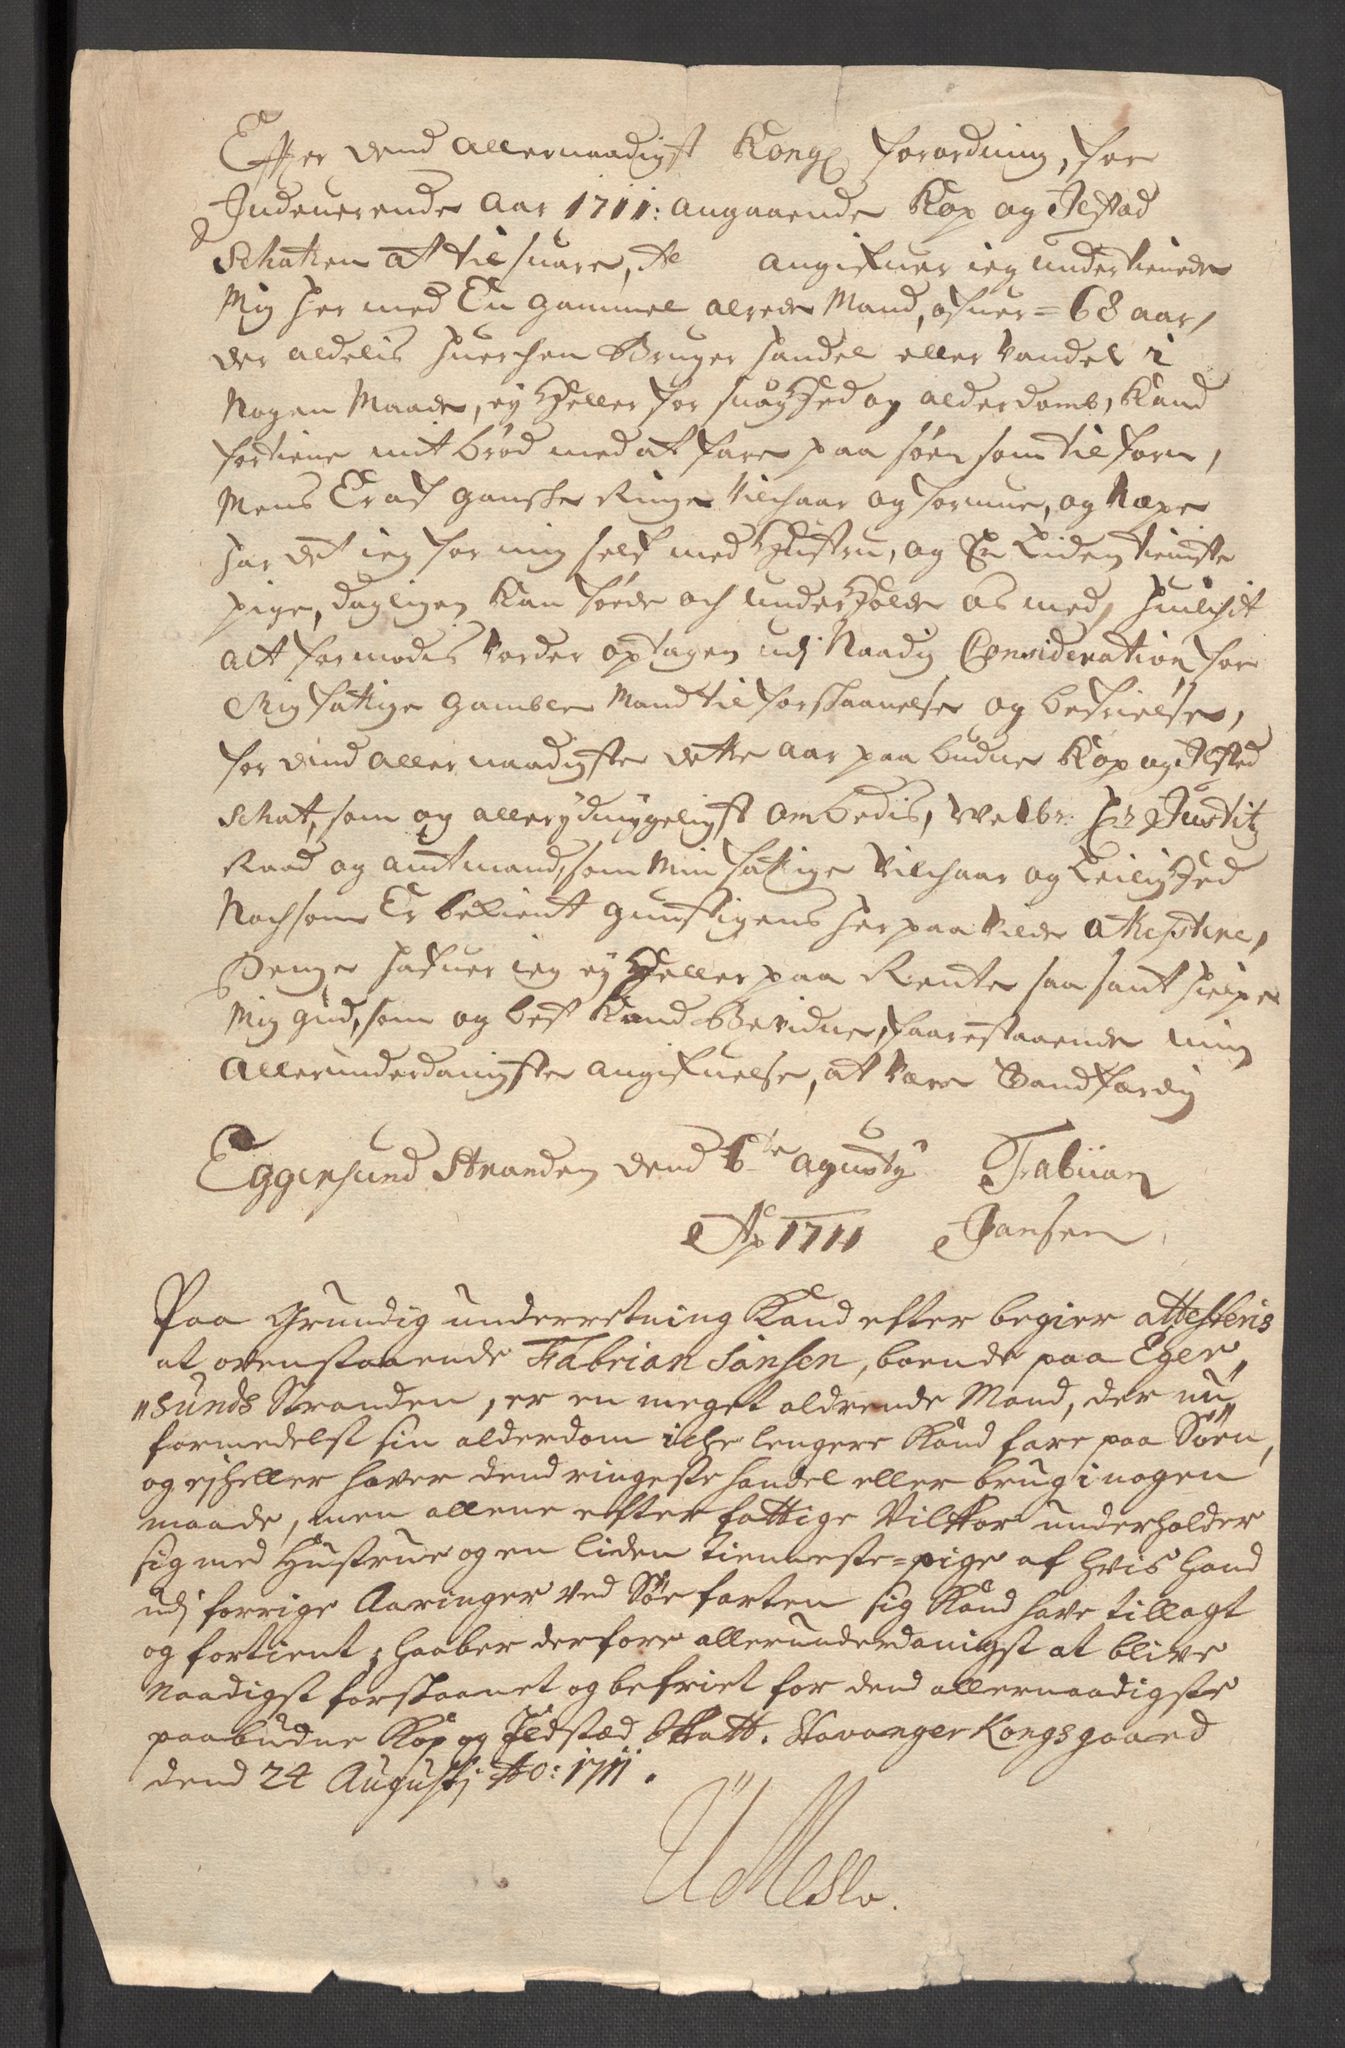 Efter dend allernaadigst Kongl forordning, for
Indeuerende Aar 1711: angaaende Kop og Ilsted
Schatten at tilsuare, etc angifuer ieg underskrefne
Mig her med En gammel alrede Mand, ofuer = 68 aar,
der aldelis huerchen Bruger handel eller vandel i
Nogen Maade, ey Heller for suagHed og alderdomb, Kand
fortiene mit brød med at fare paa søen som tilforn,
Mens Er af ganske Ringe vilchaar og formue, og Næpe
har det ieg for mig self med Hustru, og En Liden tieniste
pige, dagligen kan føede och underHolde os med, huilchit
alt formodis vorder optagen udj Naadig Consideration for
Mig fattige gamble Mand til forskaanelse og befrielse,
for dend allernaadigste dette aar paabudne Kop og Ilsted
schat, som og allerydmygeligst ombedis, Welbr: Hr Justitz
Raad og amtmand, som Min fattige vilchaar og LeiligHed
Nochsom Er bekient gunstigens her paa vilde attestere,
Penge hafuer ieg ey Heller paa Rente saa sant hielpe
Mig gud, som og best Kand Bevidne, faarestaaende min
Allerunderdanigste angifuelse, at være Sandfærdig
Eggersund Stranden dend 6te agusty Fabiian
Ao 1711 Jansen
Paa Grundig underretning Kand efter begier attesteris
at ovenstaaende Fabrian Jansen, boende paa Eger„
„sunds Stranden, er en meget aldrende Mand, der nu
formedelst sin alderdom icke lengere Kand fare paa Søen,
og ejheller haver dend ringeste handel eller brug i nogen
maade, men allene efter fattige Vilkor underholder
sig med Hustrue og en liden tienneste=pige af hvis hand
udj forrige Aaringer ved Søefarten sig Kand have tillagt
og fortient; haaber derfore allerunderdanigst at blive
Naadigst forskaanet og befriet for dend allernaadigste
paabudne Kop og Ildstæd Skatt. Stavanger Kongsgaard
dend 24 Augustj Ao: 1711.